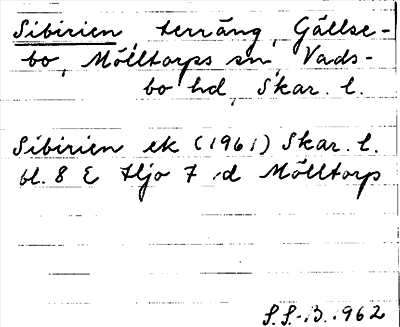 Sibirien, terräng, Gällse-
bo, Mölltorps sn, Vads-
bo hd, Skar. l.
Sibirien ek (1961) Skar. l.
bl. 8 E Hjo 7 d Mölltorp
S.S.-B. 1962